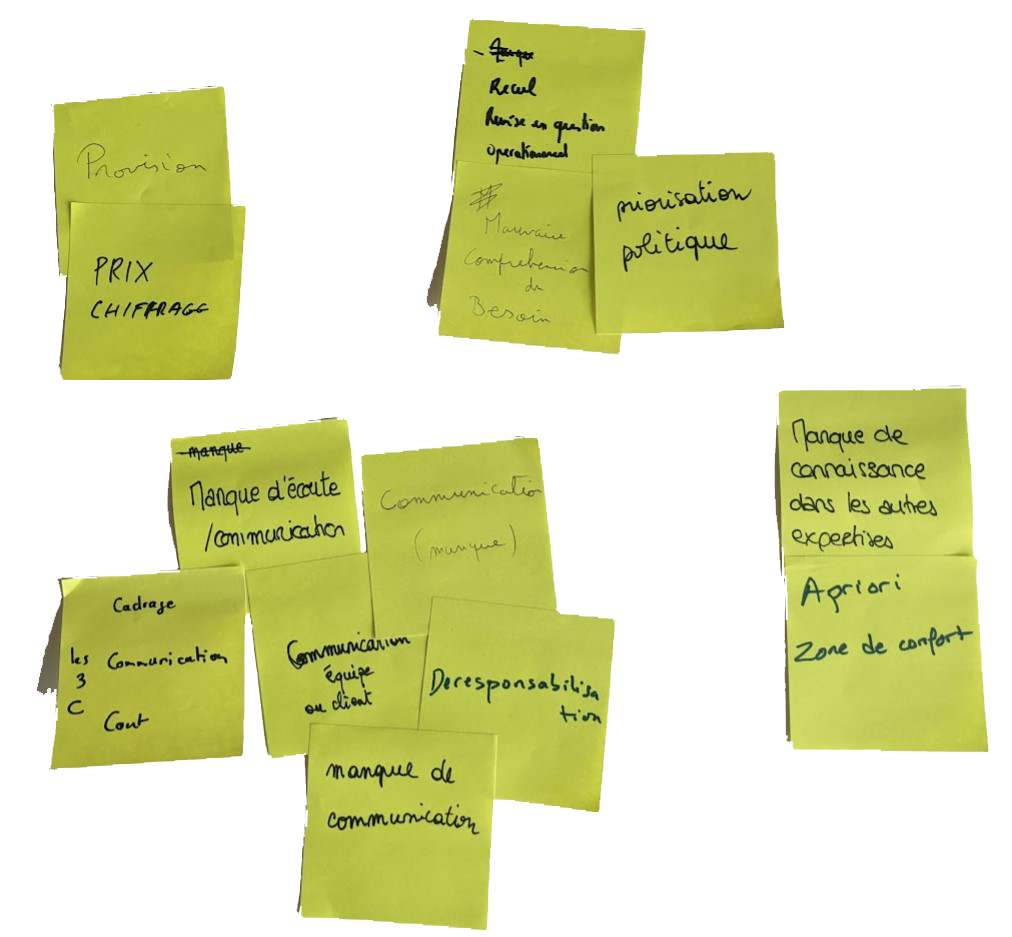 Provision
PRIX
CHIFFRAGE
- Manque
Recul
Remise en question
operationnel
Mauvaise
Comprehension
du
Besoin
priorisation
politique
manque
Manque d'écoute
/communication
Communication
(manque)
Cadrage
les Communication
3
C Cout
Communication
équipe
ou client
Deresponsabilisa
tion
manque de
communication
Manque de
connaissance
dans les autres
expertises
Apriori
Zone de confort